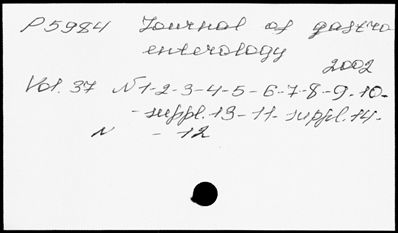 P5984 Journal of gastro
enterology
2002
Vol. 37 N1-2-3-4-5-6-7-8-9-10-
-suppl.13-11-suppl.14-
N - 12